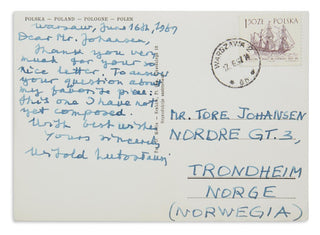 POLSKA – POLAND – POLOGNE – POLEN
Warsaw, June 16th, 1967
Dear Mr. Johansen,
thank you very
much for your so
nice letter. To answer
your question about
my favorite piece:
this one I have not
yet composed.
With best wishes
Yours sincerely
Witold Lutosławski
1,50 ZŁ POLSKA
WARSZAWA
MR. TORE JOHANSEN
NORDRE GT. 3,
TRONDHEIM
NORGE
(NORWEGIA)